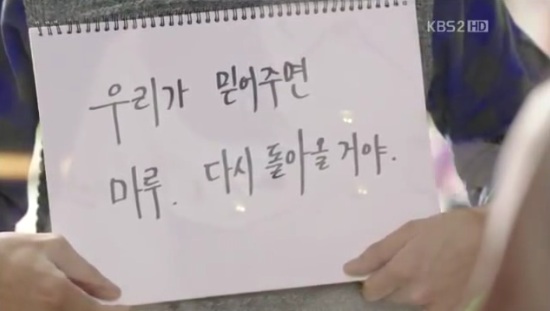 KBS2 HD
우리가 믿어주면
마루. 다시 돌아올 거야.